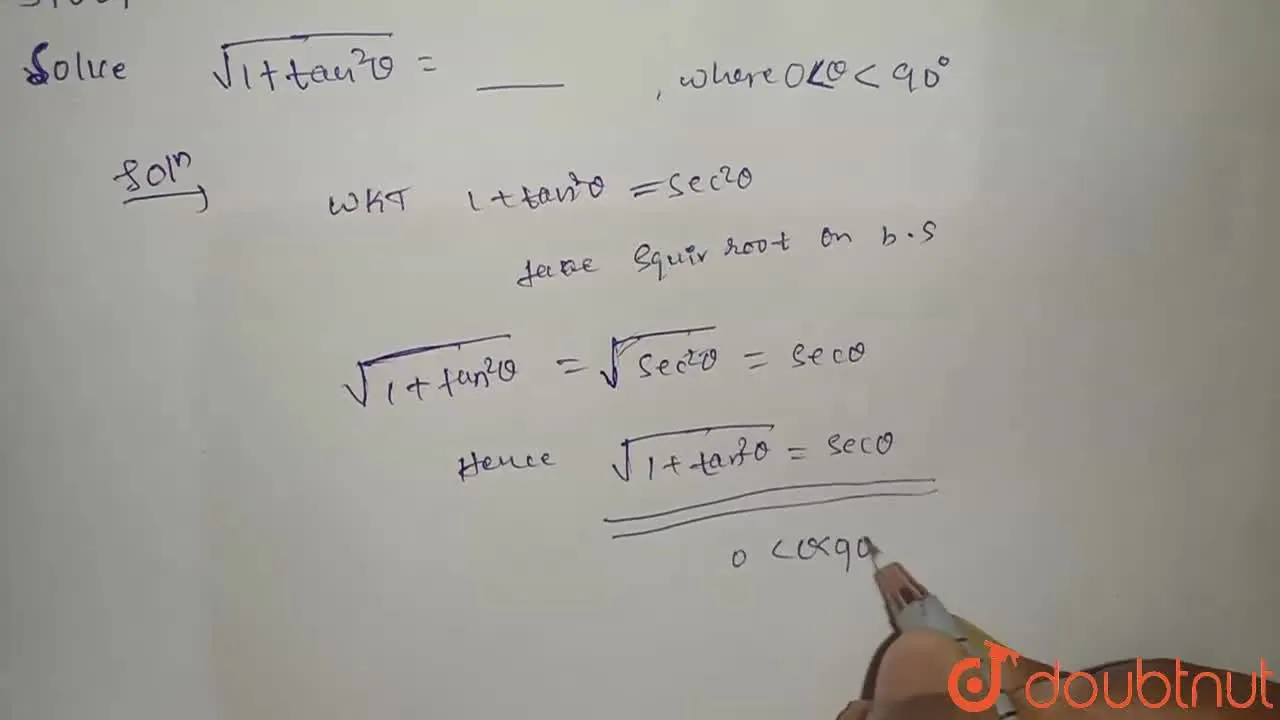 Solve √1+tan²θ = ___ , where 0<θ<90°
Solⁿ
WKT 1+tan²θ = sec²θ
root on b.s
√1+tan²θ = √sec²θ = secθ
Hence √1+tan²θ = secθ
0<θ<90
doubtnut